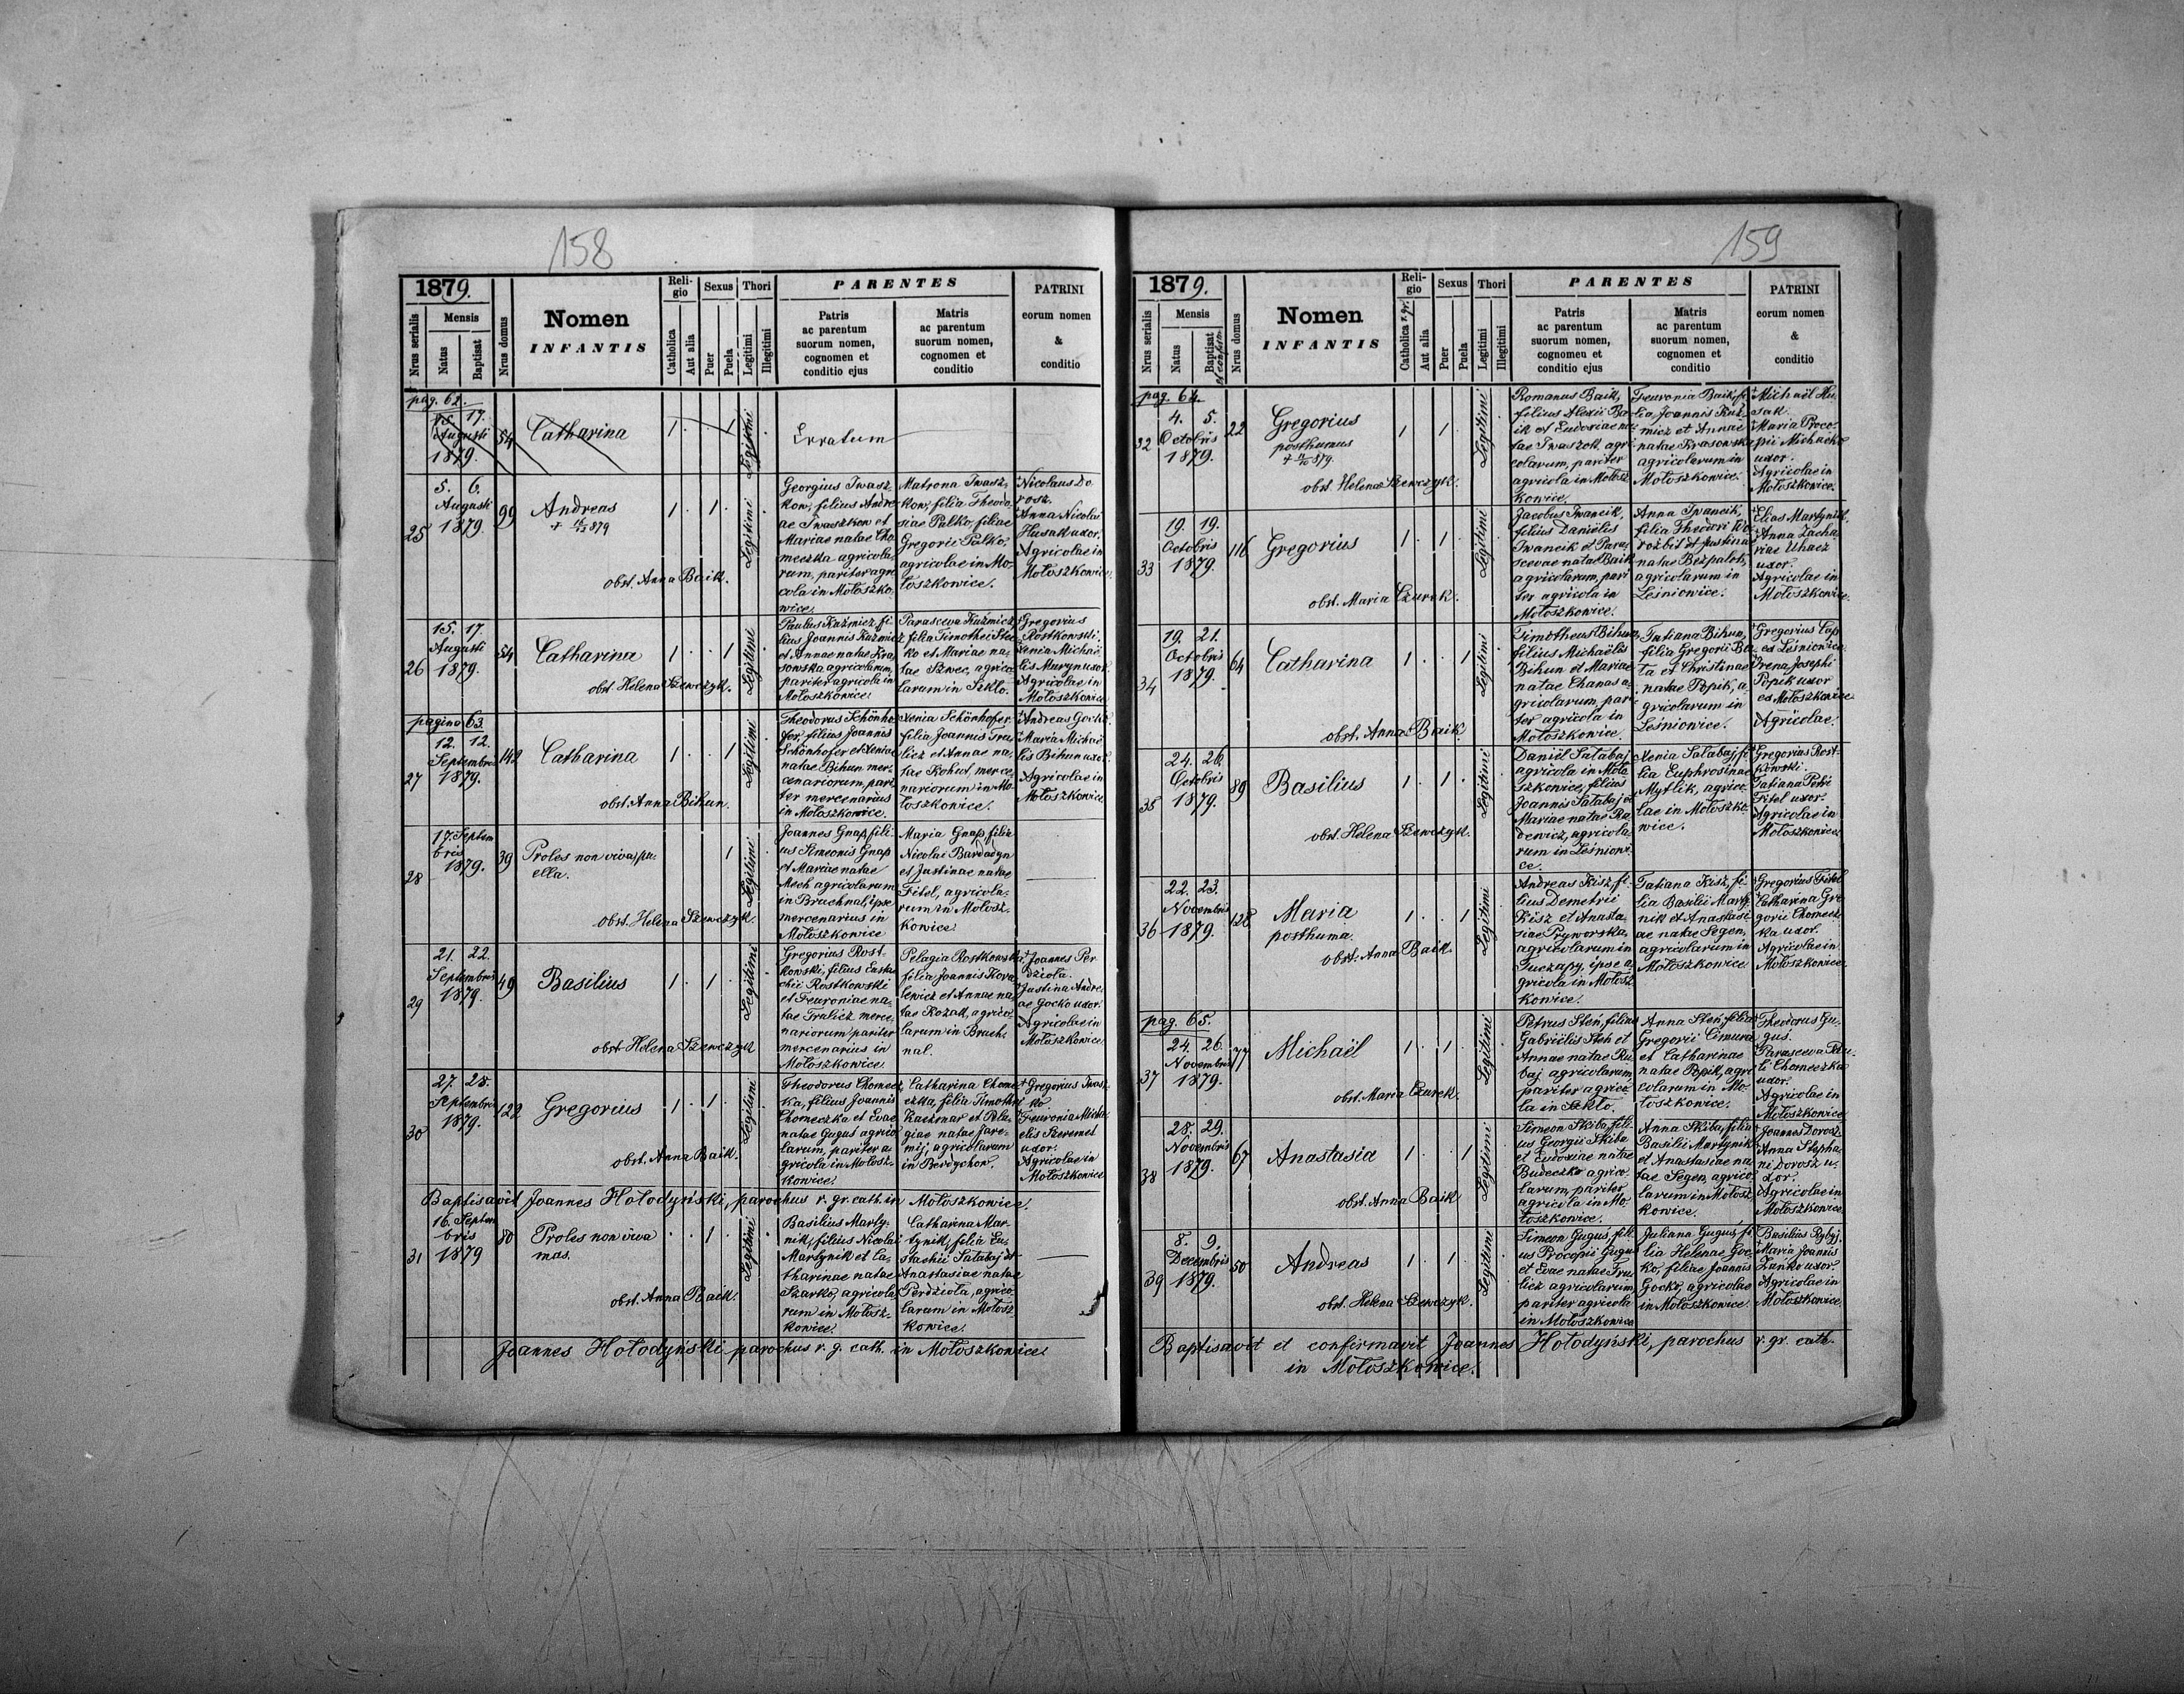 158
1879.
Nrus serialis
Mensis
Natus
Baptisat
Nrus domus
Nomen
INFANTIS
Religio
Catholica
Aut alia
Sexus
Puer
Puela
Thori
Legitimi
Illegitimi
PARENTES
Patris
ac parentum
suorum nomen,
cognomen et
conditio ejus
Matris
ac parentum
suorum nomen,
cognomen et
conditio
PATRINI
eorum nomen
&
conditio
pag. 62.
15. 17.
Augusti
1879.
54
Catharina
1 . . 1
Legitimi
Erratum
25
5. 6.
Augusti
1879
99
Andreas
obst. Anna Baik.
1 . 1 .
Legitimi
Georgius Iwasz-
kow, filius Andre
ae Iwaszkow et
Mariae natae Cho
meczka agricola-
rum, pariter agri
cola in Mołoszko
wice.
Matrona Iwasz-
kow, filia Theodo-
siae Pałko, filiae
Gregorii Pałko,
agricolae in Mo-
łoszkowice.
Nicolaus Do
rosz.
Anna Nicolai
Husak uxor.
Agricolae in
Mołoszkowice.
26
15. 17
Augusti
1879.
54
Catharina
obst. Helena Szewczyk.
1 . . 1
Legitimi
Paulus Kuźmicz, fi-
lius Joannis Kuźmicz
et Annae natae Kra
sowska agricolarum,
pariter agricola in
Mołoszkowice.
Parasceva Kuźmicz
filia Timothei Stec
ko et Mariae na-
tae Szwec, agrico
larum in Szkło.
Gregorius
Rostkowski.
Xenia Michaë
lis Muryn uxor
Agricolae in
Mołoszkowice
pagina 63.
27
12. 12.
Septembris
1879.
142
Catharina
obst. Anna Bihun.
1 . . 1
Legitimi
Theodorus Schönho
fer, filius Joannis
Schönhofer et Xeniae
natae Bihun mer-
cenariorum, pari
ter mercenarius
in Mołoszkowice.
Xenia Schönhofer
filia Joannis Tra
licz et Annae na-
tae Kohut, merce
nariorum in Mo-
łoszkowice.
Andreas Gocko.
Maria Michaë
lis Bihun uxor
Agricolae in
Mołoszkowice
28
17. Septem
bris
1879.
39
Proles non viva, pu-
ella.
obst. Helena Szewczyk.
1
Legitimi
Joannes Gnap, fili-
us Simeonis Gnap
et Mariae natae
Mech agricolarum
in Bruchnal, ipse
mercenarius in
Mołoszkowice
Maria Gnap, filia
Nicolai Bardadyn
et Justinae natae
Fitel, agricola-
rum in Mołosz-
kowice.
29
21. 22.
Septembris
1879.
49
Basilius
obst. Helena Szewczyk
1 . 1 .
Legitimi
Gregorius Rost-
kowski, filius Eusta
chii Rostkowski
et Feuroniae na-
tae Tralicz merce-
nariorum, pariter
mercenarius in
Mołoszkowice
Pelagia Rostkowska,
filia Joannis Kova
lewicz et Annae na-
tae Kozak, agrico-
larum in Bruch-
nal.
Joannes Per
dzioła.
Justina Andre
ae Gocko uxor.
Agricolae in
Mołoszkowice
30
27. 28.
Septembris
1879.
122
Gregorius
obst. Anna Baik.
1 . 1 .
Legitimi
Theodorus Chomecz
ka, filius Joannis
Chomeczka et Evae
natae Guguś agrico
larum, pariter a-
gricola in Mołosz-
kowice.
Catharina Chome
czka, filia Timothei
Kaczmar et Pela-
giae natae Jare-
mij, agricolarum
in Berdychow.
Gregorius Iwasz-
ko.
Feuronia Micha-
elis Szeremet
uxor.
Agricolae in
Mołoszkowice
Baptisavit Joannes Hołodyński, parochus r. gr. cath. in Mołoszkowice.
31
16. Septem
bris
1879
80
Proles non viva
mas.
obst. Anna Baik.
. . 1 .
Legitimi
Basilius Marty-
nik, filius Nicolai
Martynik et Ca-
tharinae natae
Szarko, agricola
rum in Mołosz-
kowice.
Catharina Mar-
tynik, filia Eu-
stachii Sałabaj et
Anastasiae natae
Perdzioła, agrico-
larum in Mołosz
kowice.
Joannes Hołodyński parochus r. g. cath. in Mołoszkowice.
159
1879.
Nrus serialis
Mensis
Natus
Baptisat
et confirm.
Nrus domus
Nomen
INFANTIS
Religio
Catholica r. gr.
Aut alia
Sexus
Puer
Puela
Thori
Legitimi
Illegitimi
PARENTES
Patris
ac parentum
suorum nomen,
cognomen et
conditio ejus
Matris
ac parentum
suorum nomen,
cognomen et
conditio
PATRINI
eorum nomen
&
conditio
pag. 64.
32
4. 5.
Octobris
1879.
22
Gregorius
posthumus
obst. Helena Szewczyk.
1 . 1 .
Legitimi
Romanus Baik,
filius Alexii Ba-
ik et Eudociae na-
tae Iwaszek agri
colarum, pariter
agricola in Mołosz
kowice.
Feuronia Baik, fi-
lia Joannis Kuź-
micz et Annae
natae Krasowska
agricolarum in
Mołoszkowice.
Michaël Hu-
sak.
Maria Proco-
pii Michackó
uxor.
Agricolae in
Mołoszkowice.
33
19. 19.
Octobris
1879.
116
Gregorius
obst. Maria Czurek.
1 . 1 .
Legitimi
Jacobus Iwancik,
filius Daniëlis
Iwancik et Para-
scevae natae Baik
agricolarum, pari
ter agricola in
Mołoszkowice.
Anna Iwancik,
filia Theodori Wo-
rożbit et Justinae
natae Bezpalok,
agricolarum in
Leśniowice.
Elias Martynik.
Anna Zacha-
riae Uhacz
uxor.
Agricolae in
Mołoszkowice.
34
19. 21.
Octobris
1879.
64
Catharina
obst. Anna Baik.
1 . . 1
Legitimi
Timotheus Bihun,
filius Michaëlis
Bihun et Mariae
natae Chanas a-
gricolarum, pari
ter agricola in
Mołoszkowice.
Tatiana Bihun,
filia Gregorii Ba-
ta et Christinae
natae Popik, a-
gricolarum in
Leśniowice.
Gregorius Cap
ex Leśniowice.
Irena Josephi
Popik uxor
ex Mołoszkowice
Agricolae.
35
24. 26.
Octobris
1879.
89
Basilius
obst. Helena Szewczyk.
1 . 1 .
Legitimi
Daniël Sałabaj
agricola in Moło
szkowice, filius
Joannis Sałabaj et
Mariae natae Ra
dewicz, agricola
rum in Leśniowi
ce.
Xenia Sałabaj, fi-
lia Euphrosinae
Mytlik, agrico-
lae in Mołoszko-
wice.
Gregorius Rost-
kowski.
Tatiana Petri
Fitel uxor.
Agricolae in
Mołoszkowice.
36
22. 23.
Novembris
1879.
128
Maria
posthuma.
obst. Anna Baik.
1 . . 1
Legitimi
Andreas Kisz, fi-
lius Demetrii
Kisz et Anasta-
siae Pryworska,
agricolarum in
Tuczapy, ipse a-
gricola in Mołosz
kowice.
Tatiana Kisz, fi-
lia Basilii Marty-
nik et Anastasi
ae natae Segen,
agricolarum in
Mołoszkowice.
Gregorius Fitel
Catharina Gre
gorii Chomecz-
ka uxor.
Agricolae in
Mołoszkowice
pag. 65.
37
24. 26.
Novembris
1879.
77
Michaël
obst. Maria Czurek.
1 . 1 .
Legitimi
Petrus Steń, filius
Gabriëlis Steń et
Annae natae Ru-
baj agricolarum,
pariter agrico-
la in Szkło.
Anna Steń, filia
Gregorii Cimura
et Catharinae
natae Popik, agri
colarum in Mo-
łoszkowice.
Theodorus Gu-
gus.
Chomeczka
uxor.
Agricolae in
Mołoszkowice
38
28. 29.
Novembris
1879.
67
Anastasia
obst. Anna Baik
1 . . 1
Legitimi
Simeon Skiba, fili-
us Georgii Skiba
et Eudoxiae natae
Budeczko agrico-
larum, pariter
agricola in Mo-
łoszkowice.
Anna Skiba, filia
Basilii Martynik
et Anastasiae na-
tae Segen, agrico-
larum in Mołosz-
kowice.
Joannes Dorosz
Anna Stepha-
ni Dorosz u-
xor.
Agricolae in
Mołoszkowice.
39
8. 9.
Decembris
1879.
50
Andreas
obst. Helena Szewczyk.
1 . 1 .
Legitimi
Simeon Guguś, fili-
us Procopii Guguś
et Evae natae Tra
licz agricolarum,
pariter agricola
in Mołoszkowice
Julianna Guguś, fi-
lia Helenae Goc-
ko, filiae Joannis
Gocko, agricolae
in Mołoszkowice.
Basilius Rybyj.
Maria Joannis
Zańko uxor
Agricolae in
Mołoszkowice.
Baptisavit et confirmavit Joannes Hołodyński, parochus r. gr. cath.
in Mołoszkowice.